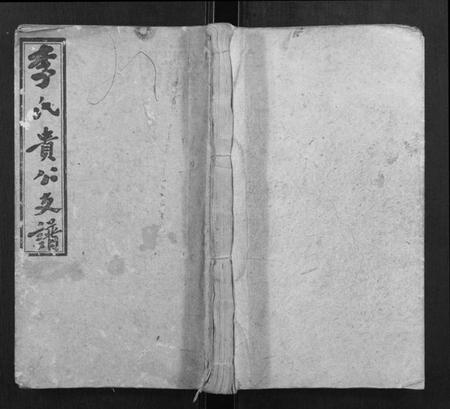 李氏貴公支譜